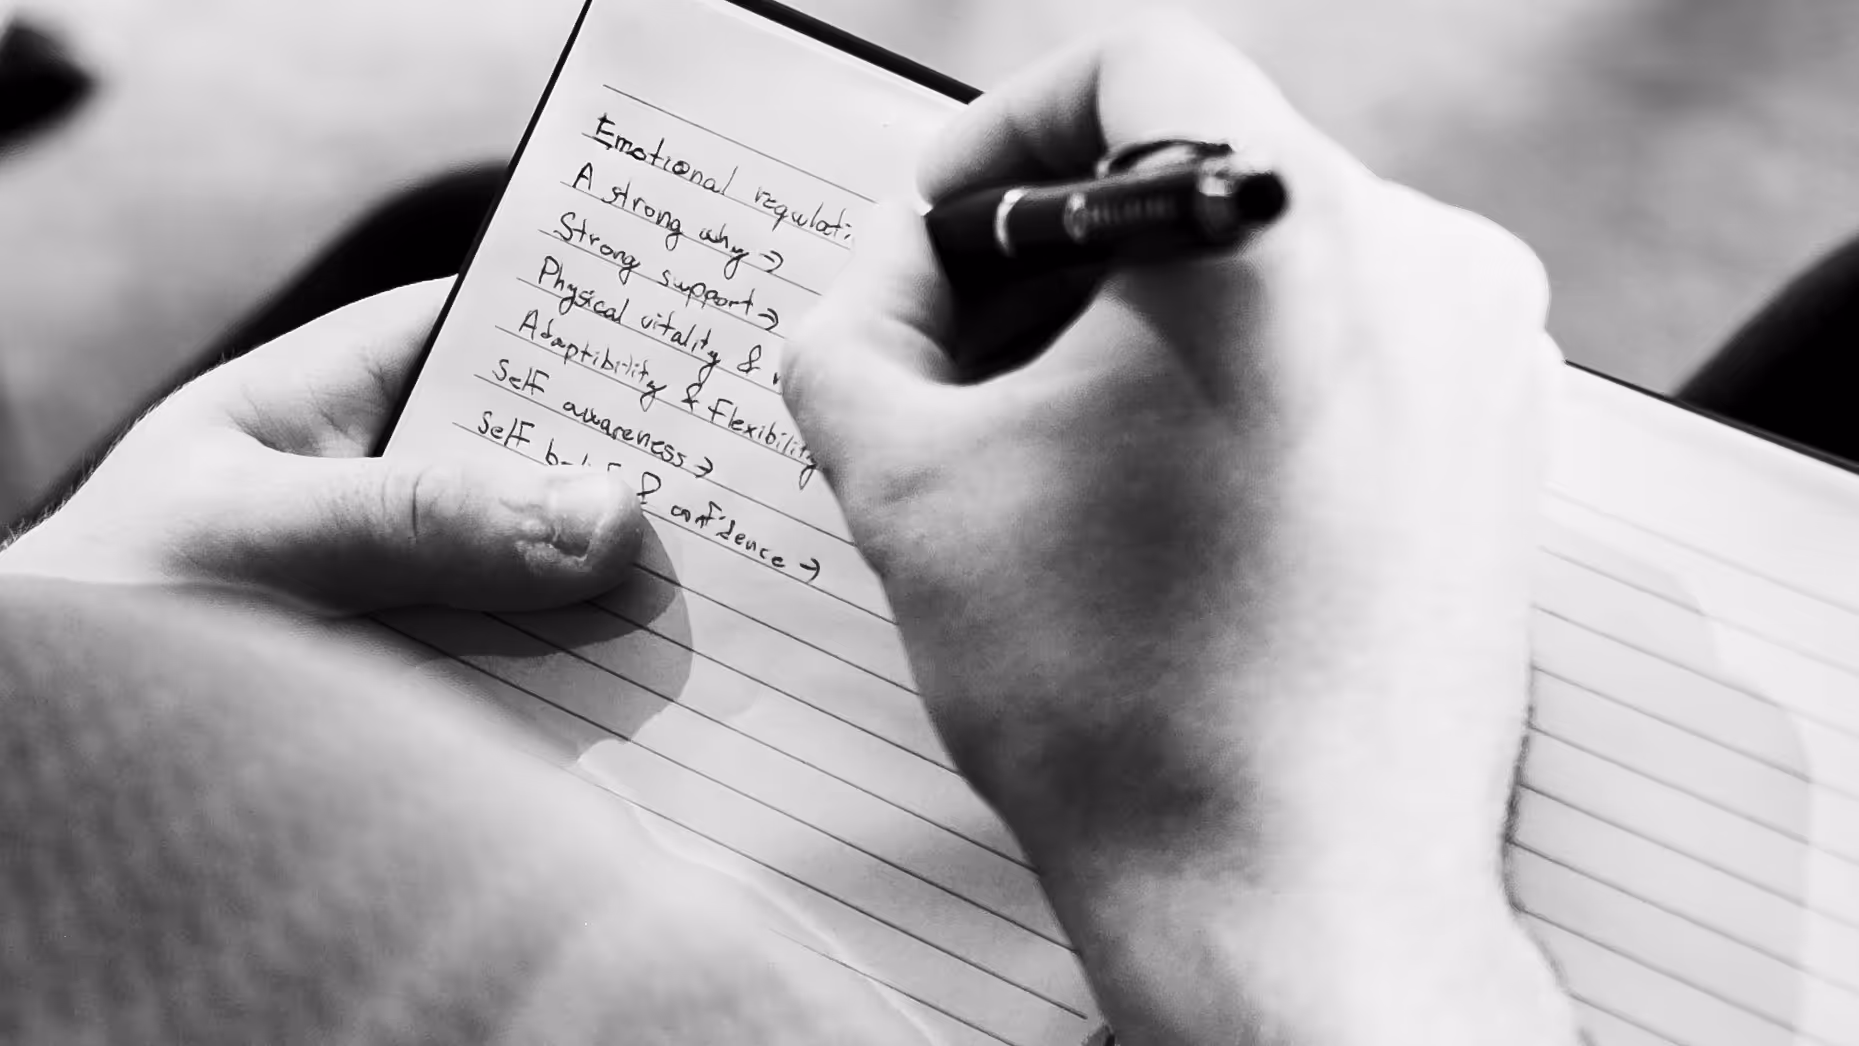 Emotional
A strong why →
Strong support →
Physical vitality &
Adaptibility & Flexibility
Self awareness →
Self & confidence →